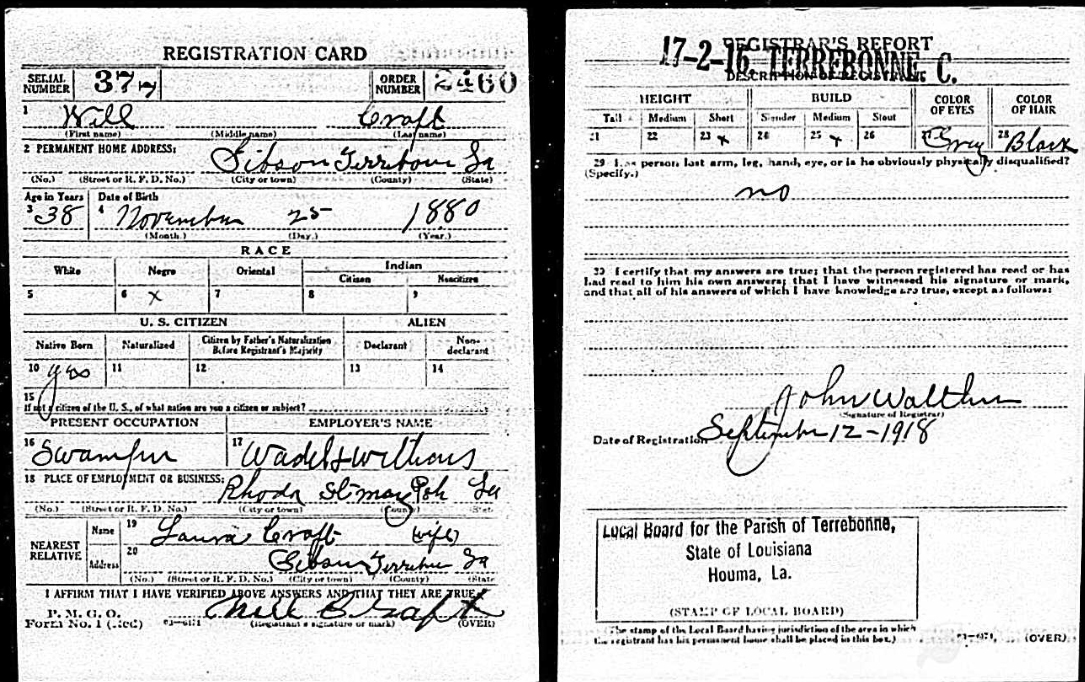 REGISTRATION CARD
SERIAL NUMBER 37
ORDER NUMBER 2460
1 Will Craft
(First name) (Middle name) (Last name)
2 PERMANENT HOME ADDRESS:
Gibson Terrebonne La
(No.) (Street or R. F. D. No.) (City or town) (County) (State)
Age in Years Date of Birth
3 38 4 November 25 1880
(Month.) (Day.) (Year.)
RACE
White Negro Oriental Indian
Citizen Noncitizen
5 6 x 7 8 9
U. S. CITIZEN ALIEN
Native Born Naturalized Citizen by Father's Naturalization Before Registrant's Majority Declarant Non-declarant
10 yes 11 12 13 14
15
If not a citizen of the U. S., of what nation are you a citizen or subject?
PRESENT OCCUPATION EMPLOYER'S NAME
16 Swamper 17
18 PLACE OF EMPLOYMENT OR BUSINESS:
Rhoda St-mary Psh La
(No.) (Street or R. F. D. No.) (City or town) (County) (State)
NEAREST RELATIVE
Name 19 Laura Craft (wife)
Address 20 Gibson La
(No.) (Street or R. F. D. No.) (City or town) (County) (State
I AFFIRM THAT I HAVE VERIFIED ABOVE ANSWERS AND THAT THEY ARE TRUE
P. M. G. O.
Form No. 1 (Red) Will Craft
(Registrant's signature or mark) (OVER)
REGISTRAR'S REPORT
17-2-16 TERREBONNE C.
DESCRIPTION OF REGISTRANT
HEIGHT BUILD COLOR OF EYES COLOR OF HAIR
Tall Medium Short Slender Medium Stout
21 22 23 x 24 25 x 26 27 Grey 28 Black
29 Has person lost arm, leg, hand, eye, or is he obviously physically disqualified?
(Specify.)
no
30 I certify that my answers are true; that the person registered has read or has
had read to him his own answers; that I have witnessed his signature or mark,
and that all of his answers of which I have knowledge are true, except as follows:
John
(Signature of Registrar)
Date of Registration September 12-1918
Local Board for the Parish of Terrebonne,
State of Louisiana
Houma, La.
(STAMP OF LOCAL BOARD)
(The stamp of the Local Board having jurisdiction of the area in which
the registrant has his permanent home shall be placed in this box.)
(OVER)